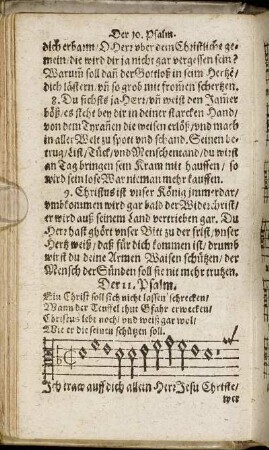 Der 10. Psalm.
dich erbarm / O Herr vber dein Christliche ge-
mein / die wird dir ja nicht gar vergessen sein?
Warum̃ soll dañ der Gottloß in seim Hertzẽ /
dich lästern / vñ so grob mit from̃en schertzen.
8. Du sichsts ja Herr / vñ weist den Jam̃er
böß / es steht bey dir in deiner starcken Hand /
von dem Tyrañen die weisen erlöß / vnd mach
in aller Welt zu spott vnd schand. Seinen be-
trug / List / Tück / vnd Menschentand / du wirst
an Tag bringen sein Kram mit hauffen / so
wird sein lose War nieman mehr kauffen.
9. Christus ist vnser König im̃merdar /
vmbkommen wird gar bald der Widerchrist /
er wird auß seinem Land vertrieben gar. Du
Herr hast ghört vnser Bitt zu der frist / vnser
Hertz weiß / daß für dich kommen ist / drumb
wirst du deine Armen Waisen schützen / der
Mensch der Sünden soll sie nit mehr trutzen.
Der 11. Psalm.
Ein Christ soll sich nicht lassen schrecken /
Wann der Teuffel thut Gfahr erwecken /
Christus lebt noch / vnd weiß gar wol /
Wie er die seinen schützen soll.
Ich traw auff dich allein Herr Jesu Christe /
wer